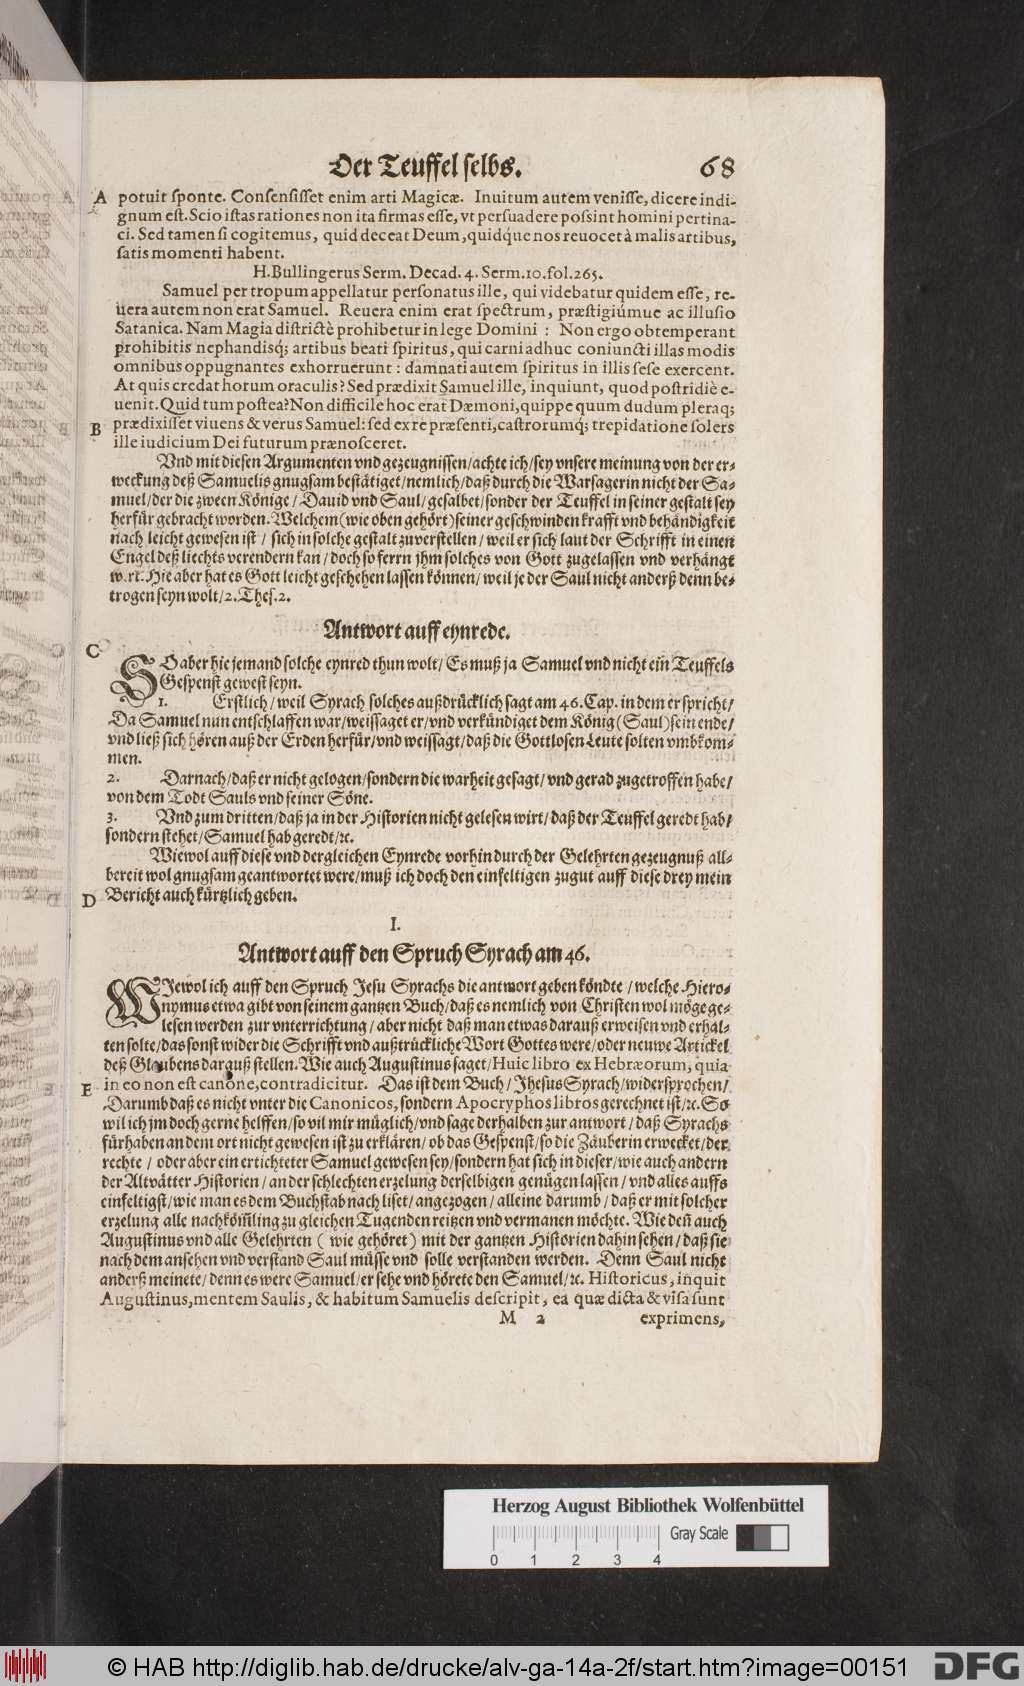 Der Teuffel selbs. 68
A potuit sponte. Consensisset enim arti Magicæ. Inuitum autem venisse, dicere indi-
gnum est. Scio istas rationes non ita firmas esse, vt persuadere possint homini pertina-
ci. Sed tamen si cogitemus, quid deceat Deum, quidque nos reuocet à malis artibus,
satis momenti habent.
H. Bullingerus Serm. Decad. 4. Serm. 10. fol. 265.
Samuel per tropum appellatur personatus ille, qui videbatur quidem esse, re-
uera autem non erat Samuel. Reuera enim erat spectrum, præstigiúmue ac illusio
Satanica. Nam Magia districtè prohibetur in lege Domini : Non ergo obtemperant
prohibitis nephandisq; artibus beati spiritus, qui carni adhuc coniuncti illas modis
omnibus oppugnantes exhorruerunt : damnati autem spiritus in illis sese exercent.
At quis credat horum oraculis? Sed prædixit Samuel ille, inquiunt, quod postridiè e-
uenit. Quid tum postea? Non difficile hoc erat Dæmoni, quippe quum dudum pleraq;
B prædixisset viuens & verus Samuel: sed ex re præsenti, castrorumq; trepidatione solers
ille iudicium Dei futurum prænosceret.
Vnd mit diesen Argumenten vnd gezeugnissen/achte ich/sey vnsere meinung von der er-
weckung deß Samuelis gnugsam bestätiget/nemlich/daß durch die Warsagerin nicht der Sa-
muel/der die zween Könige / Dauid vnd Saul/gesalbet/sonder der Teuffel in seiner gestalt sey
herfür gebracht worden. Welchem (wie oben gehört) seiner geschwinden krafft vnd behändigkeit
nach leicht gewesen ist / sich in solche gestalt zuverstellen / weil er sich laut der Schrifft in einen
Engel deß liechts verendern kan / doch so ferrn jhm solches von Gott zugelassen vnd verhängt
w.rt. Hie aber hat es Gott leicht geschehen lassen können/ weil je der Saul nicht anderß denn be-
trogen seyn wolt/2. Thes. 2.
Antwort auff eynrede.
C SO aber hie jemand solche eynred thun wolt/ Es muß ja Samuel vnd nicht ein Teuffels
Gespenst gewest seyn.
1. Erstlich/ weil Syrach solches außdrücklich sagt am 46. Cap. in dem er spricht/
Da Samuel nun entschlaffen war/weissaget er/vnd verkündiget dem König (Saul) sein ende/
vnd ließ sich hören auß der Erden herfür/vnd weissagt/daß die Gottlosen Leute solten vmbkom-
men.
2. Darnach/daß er nicht gelogen/sondern die warheit gesagt/ vnd gerad zugetroffen habe/
von dem Todt Sauls vnd seiner Söne.
3. Vnd zum dritten/daß ja in der Historien nicht gelesen wirt/ daß der Teuffel geredt hab/
sondern stehet/Samuel hab geredt/ꝛc.
Wiewol auff diese vnd dergleichen Eynrede vorhin durch der Gelehrten gezeugnuß all-
bereit wol gnugsam geantwortet were/muß ich doch den einfeltigen zugut auff diese drey mein
D Bericht auch kürtzlich geben.
I.
Antwort auff den Spruch Syrach am 46.
WIewol ich auff den Spruch Jesu Syrachs die antwort geben köndte / welche Hiero-
nymus etwa gibt von seinem gantzen Buch/daß es nemlich von Christen wol möge ge-
lesen werden zur vnterrichtung / aber nicht daß man etwas darauß erweisen vnd erhal-
ten solte/das sonst wider die Schrifft vnd außtrückliche Wort Gottes were/oder neuwe Artickel
deß Glaubens darauß stellen. Wie auch Augustinus saget/Huic libro ex Hebræorum, quia
E in eo non est canone, contradicitur. Das ist dem Buch / Jhesus Syrach/widersprochen/
Darumb daß es nicht vnter die Canonicos, sondern Apocryphos libros gerechnet ist/ꝛc. So
wil ich jm doch gerne helffen/so vil mir müglich/vnd sage derhalben zur antwort / daß Syrachs
fürhaben an dem ort nicht gewesen ist zu erklären/ ob das Gespenst/so die Zäuberin erwecket/der
rechte / oder aber ein ertichteter Samuel gewesen sey/sondern hat sich in dieser/wie auch andern
der Altvätter Historien / an der schlechten erzelung derselbigen genügen lassen / vnd alles auffs
einfeltigst/wie man es dem Buchstab nach liset/angezogen / alleine darumb / daß er mit solcher
erzelung alle nachköm̃ling zu gleichen Tugenden reitzen vnd vermanen möchte. Wie deñ auch
Augustinus vnd alle Gelehrten ( wie gehöret ) mit der gantzen Historien dahin sehen / daß sie
nach dem ansehen vnd verstand Saul müsse vnd solle verstanden werden. Denn Saul nicht
anderß meinete/ denn es were Samuel/er sehe vnd hörete den Samuel/ꝛc. Historicus, inquit
Augustinus, mentem Saulis, & habitum Samuelis descripit, ea quæ dicta & visa sunt
M 2 exprimens,
Herzog August Bibliothek Wolfenbüttel
Gray Scale
0 1 2 3 4
© HAB http://diglib.hab.de/drucke/alv-ga-14a-2f/start.htm?image=00151
DFG